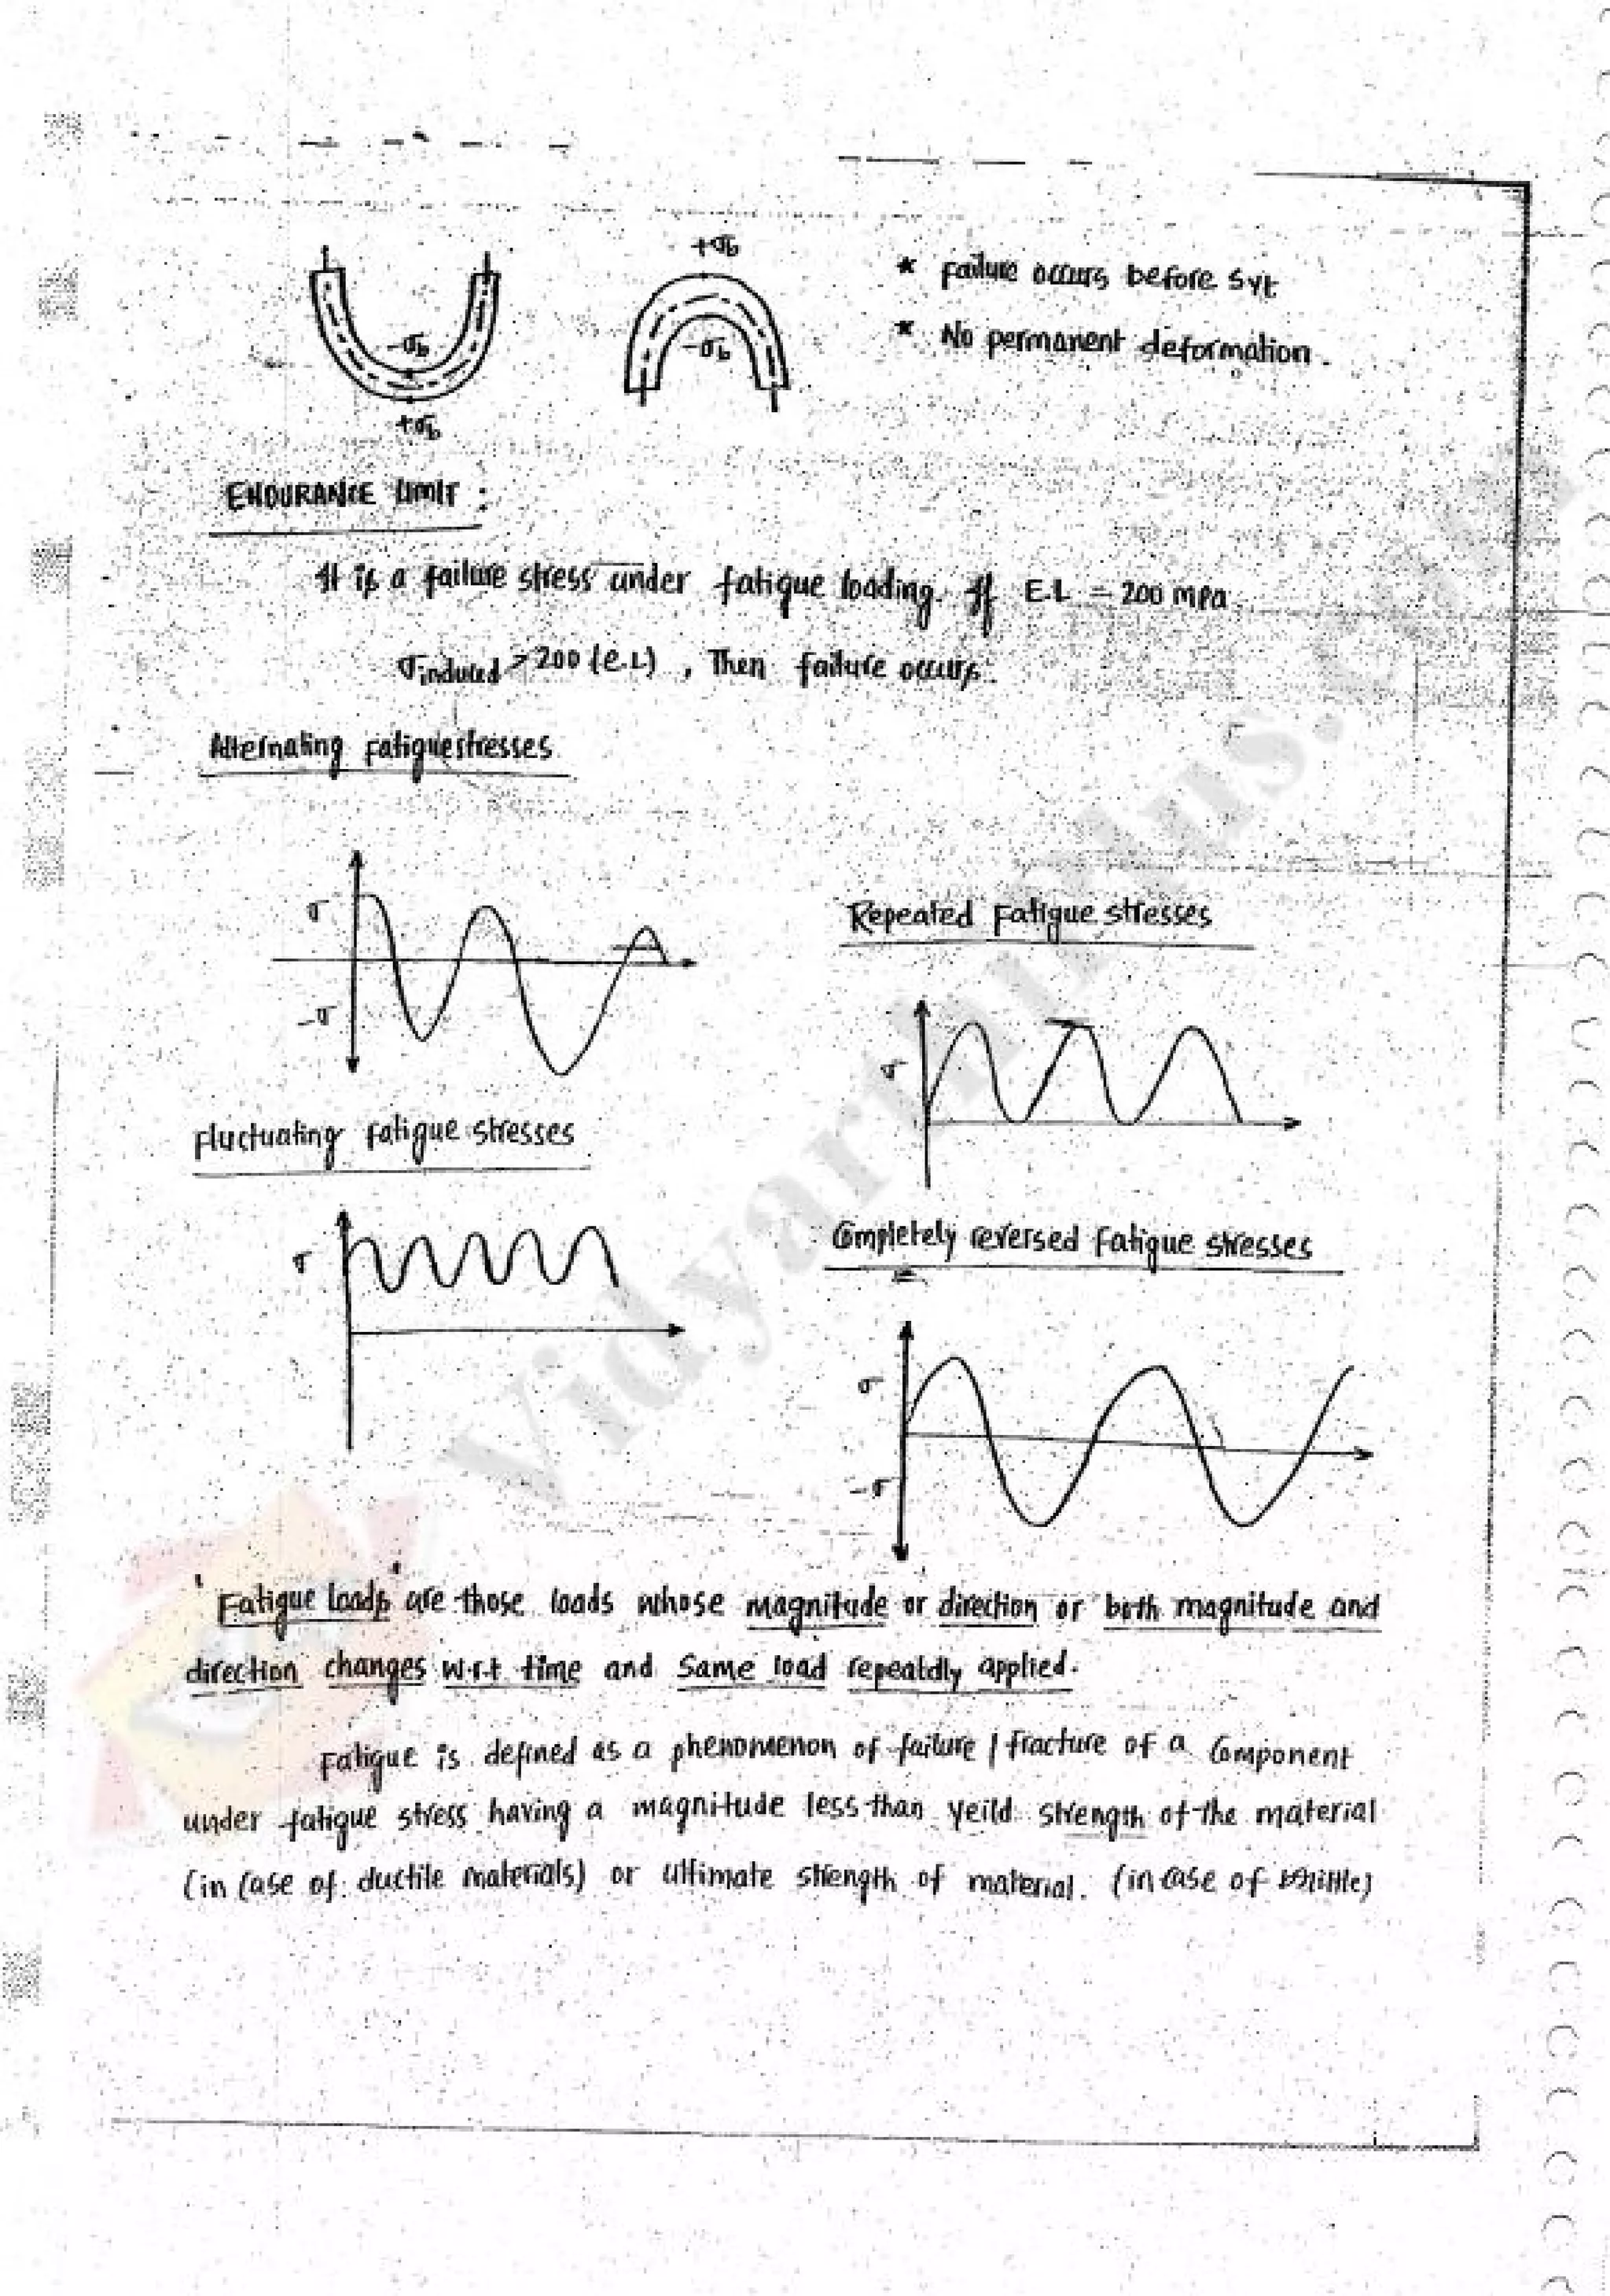 +σb
* Failure occurs before Syt
-σb
-σb
* No permanent deformation.
+σb
ENDURANCE LIMIT :
It is a failure stress under fatigue loading. If E.L = 200 mpa
σinduced > 200 (E.L) , Then failure occurs.
Alternating Fatigue stresses
σ
-σ
Repeated Fatigue stresses
σ
Fluctuating Fatigue stresses
σ
Completely reversed Fatigue stresses
σ
-σ
"Fatigue Loads" are those loads whose magnitude or direction or both magnitude and
direction changes w.r.t time and Same load repeatdly applied.
Fatigue is defined as a phenomenon of failure / fracture of a Component
under fatigue stress having a magnitude less than yeild strength of the material
(in case of ductile materials) or ultimate strength of material. (in case of brittle)